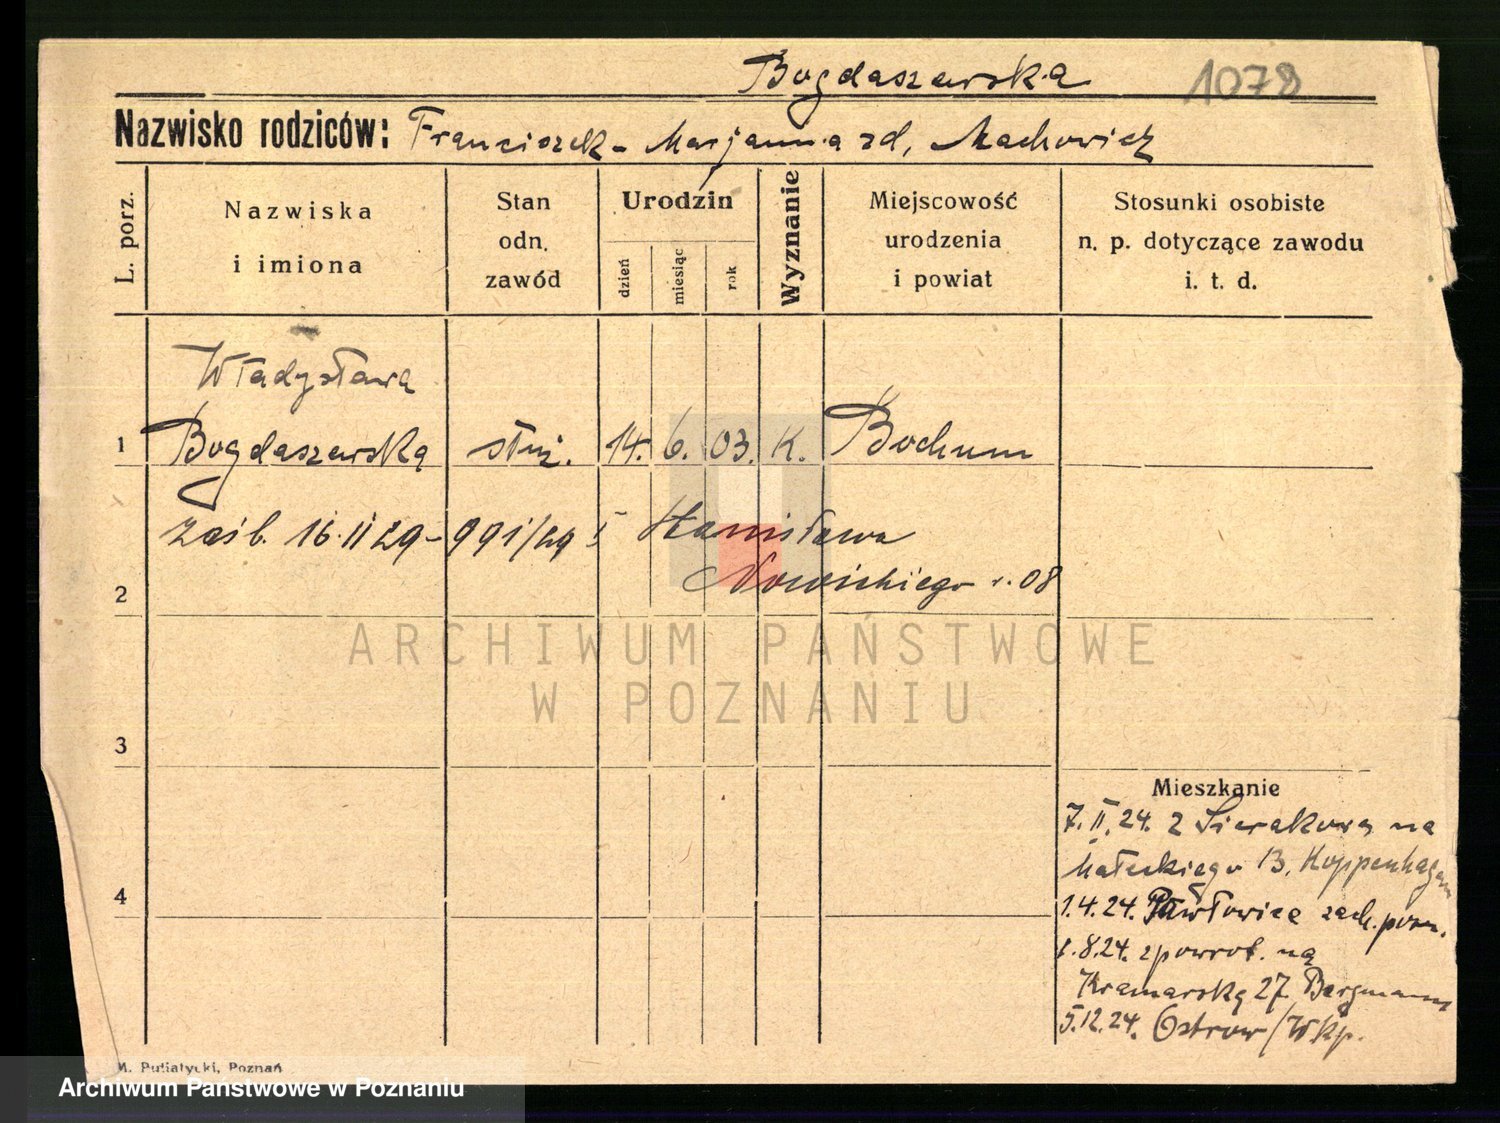 Bogdaszewska 1078
Nazwisko rodziców: Franciszek - Marjanna zd. Machowicz
L. porz.
Nazwiska
i imiona
Stan
odn.
zawód
Urodzin
dzień
miesiąc
rok
Wyznanie
Miejscowość
urodzenia
i powiat
Stosunki osobiste
n. p. dotyczące zawodu
i. t. d.
Władysława
1 Bogdaszewska służ. 14. 6. 03. K. Bochum
zaśl. 16. II 29 - 991/29 Stanisława
2 Nowickiego r. 08
ARCHIWUM PAŃSTWOWE
W POZNANIU
3
Mieszkanie
7. II. 24. z Sierakowa na
Małeckiego 13, Koppenhagen
4
1.4.24. Pawłowice zach. pozn.
1.8.24. zpowrot. na
Kramarską 27 Bergmann
5.12.24. Ostrow/Wkp.
M. Putiatycki, Poznań
Archiwum Państwowe w Poznaniu